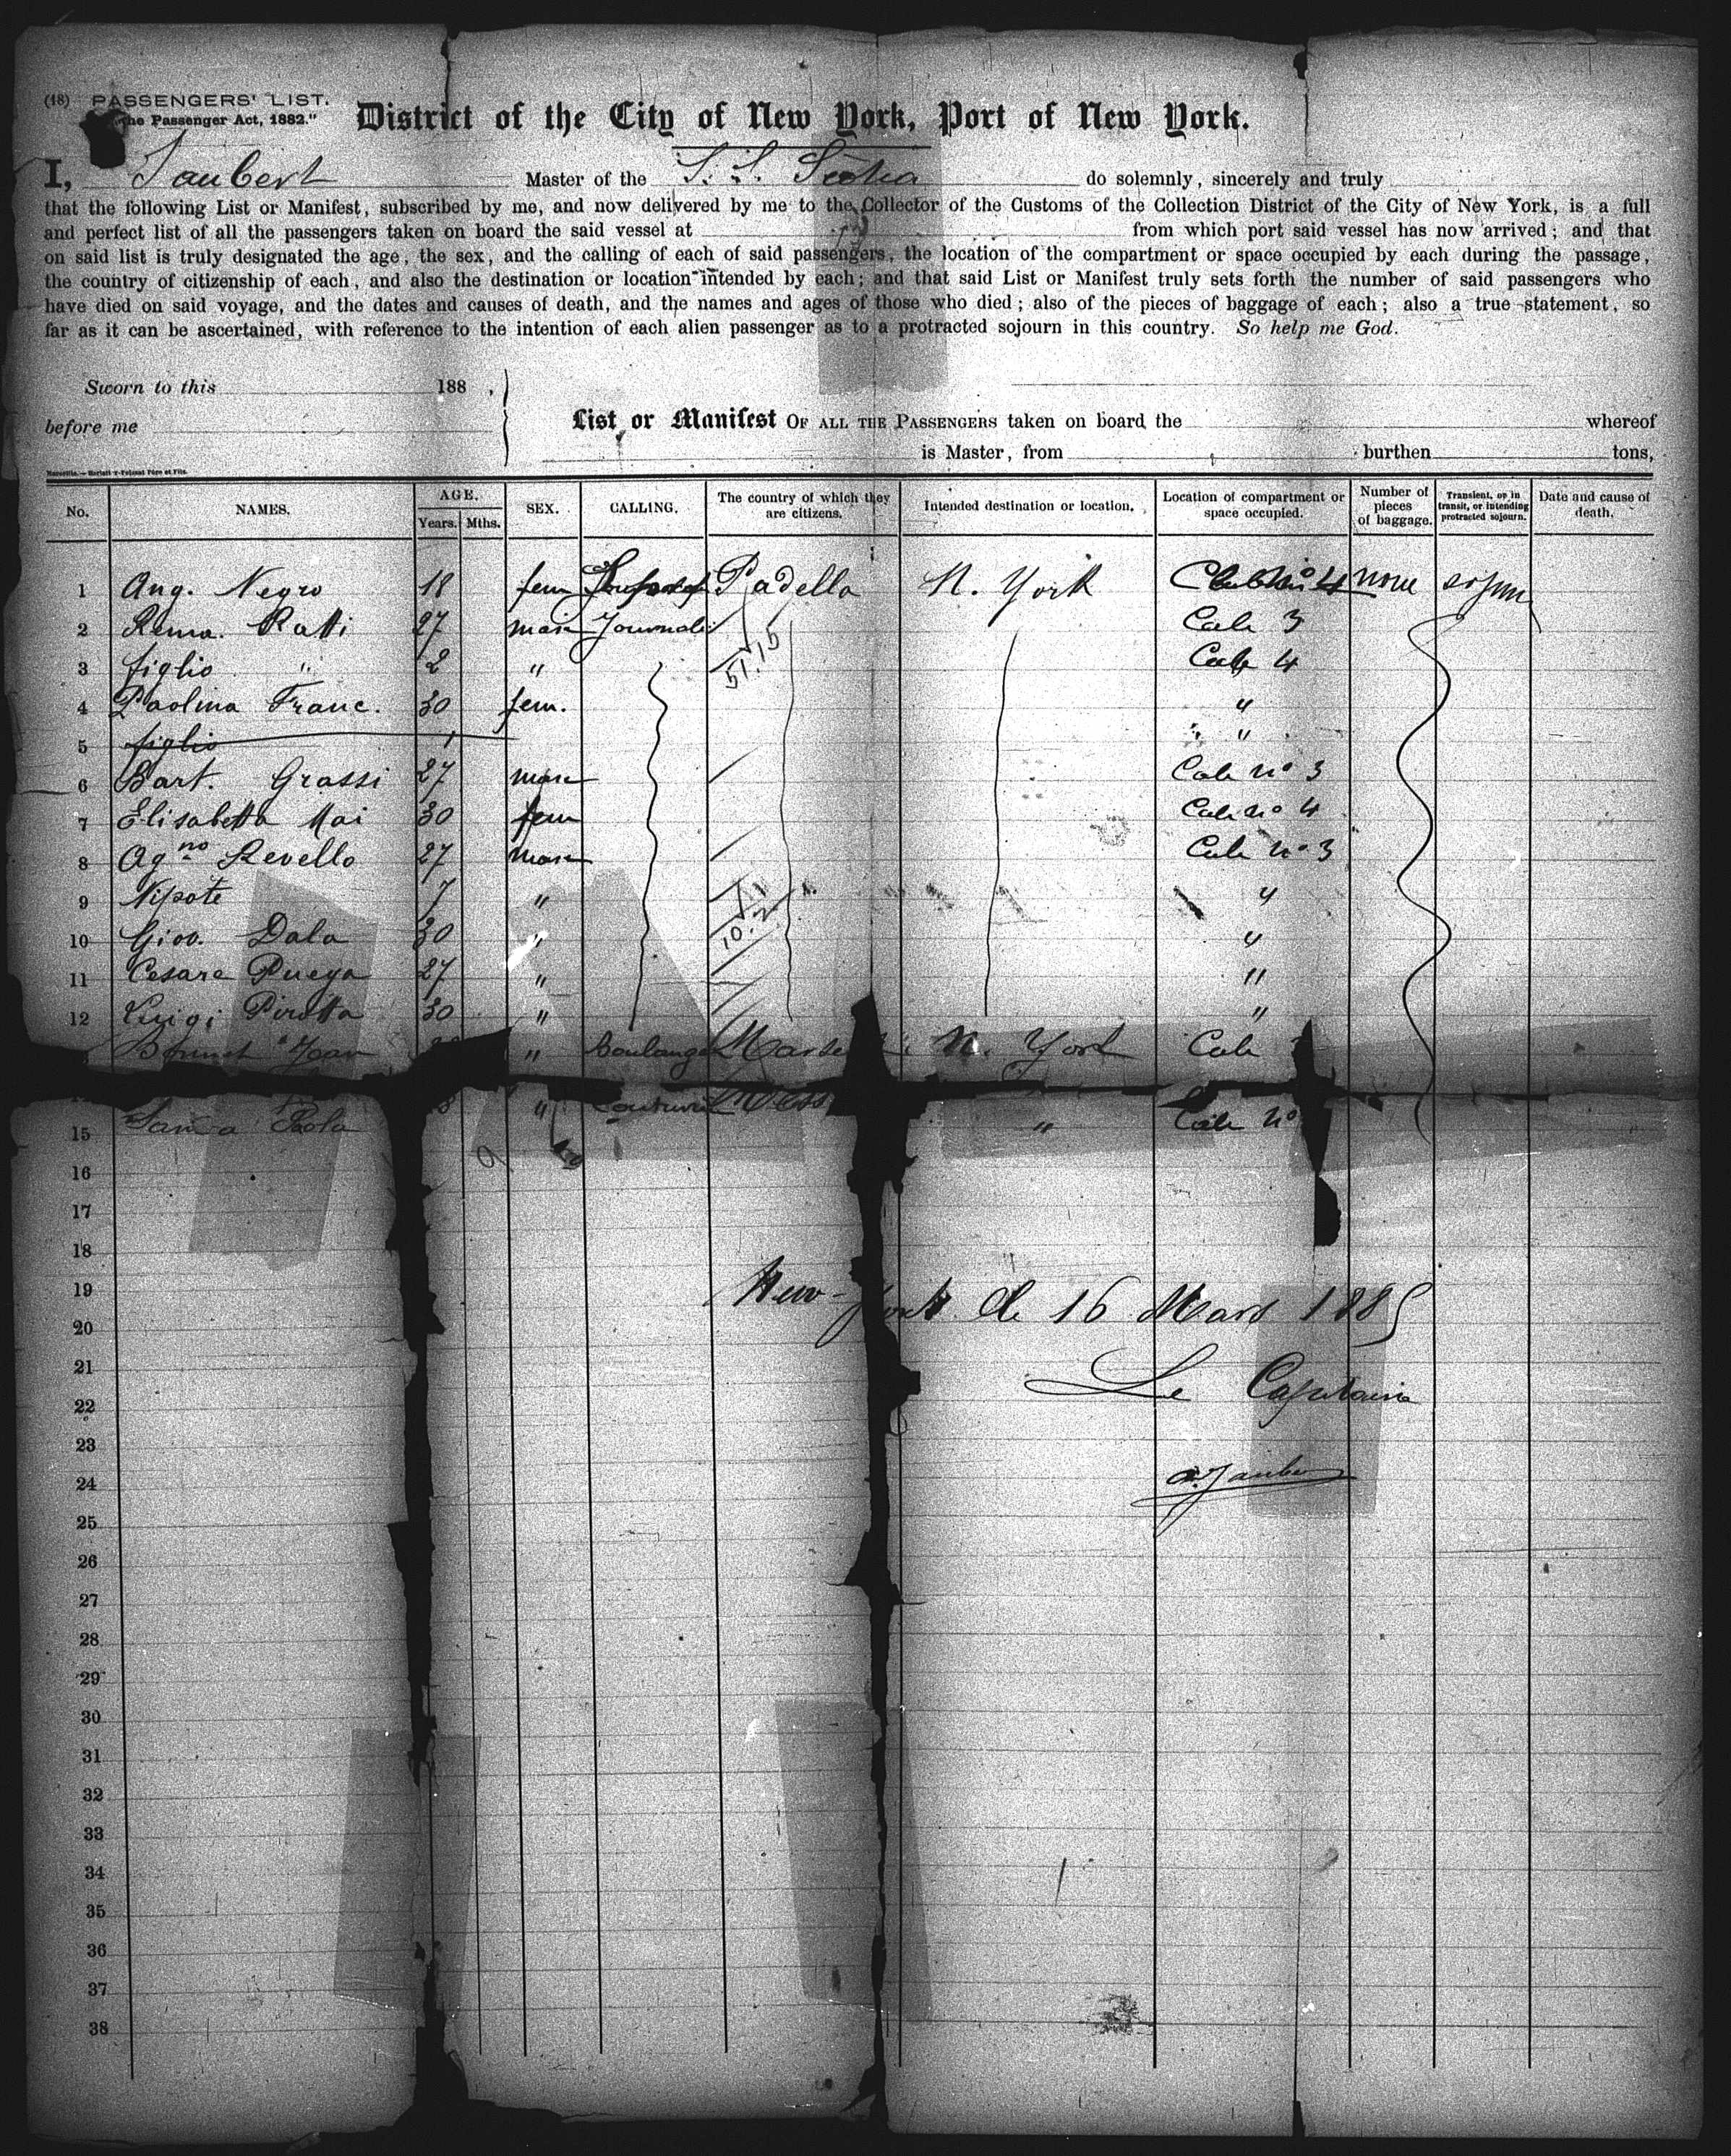 (18) PASSENGERS' LIST.
the Passenger Act, 1882."
District of the City of New York, Port of New York.
I, Jaubert Master of the S. S. Scotia do solemnly, sincerely and truly
that the following List or Manifest, subscribed by me, and now delivered by me to the Collector of the Customs of the Collection District of the City of New York, is a full
and perfect list of all the passengers taken on board the said vessel at from which port said vessel has now arrived; and that
on said list is truly designated the age, the sex, and the calling of each of said passengers, the location of the compartment or space occupied by each during the passage,
the country of citizenship of each, and also the destination or location intended by each; and that said List or Manifest truly sets forth the number of said passengers who
have died on said voyage, and the dates and causes of death, and the names and ages of those who died; also of the pieces of baggage of each; also a true statement, so
far as it can be ascertained, with reference to the intention of each alien passenger as to a protracted sojourn in this country. So help me God.
Sworn to this 188 ,
before me
List or Manifest OF ALL THE PASSENGERS taken on board the whereof
is Master, from burthen tons,
No. NAMES. AGE. Years. Mths. SEX. CALLING. The country of which they are citizens. Intended destination or location. Location of compartment or space occupied. Number of pieces of baggage. Transient, or in transit, or intending protracted sojourn. Date and cause of death.
1 Ang. Negro 18 fem Padella N. York 4 none
2 Rema. Ratti 27 Cale 3
3 figlio " 2 " 51.15 Cale 4
4 Paolina Franc. 30 fem. "
5 figlio 1 " "
6 Bart. Grassi 27 masc Cale no 3
7 Elisabetta Mai 30 fem Cale no 4
8 Agno Revello 27 masc Cale no 3
9 Nipote 7 " "
10 Giov. Dala 30 " 10.2 "
11 Cesare Pueya 27 " "
12 Luigi Pirotta 30 " "
Jean " Boulanger Marse N. York Cale
" "
15 Paola " Cale no
16
17
18
19
20
21
22
23
24
25
26
27
28
29
30
31
32
33
34
35
36
37
38
New-York le 16 Mars 1885
Le Capitaine
a. Jaubert